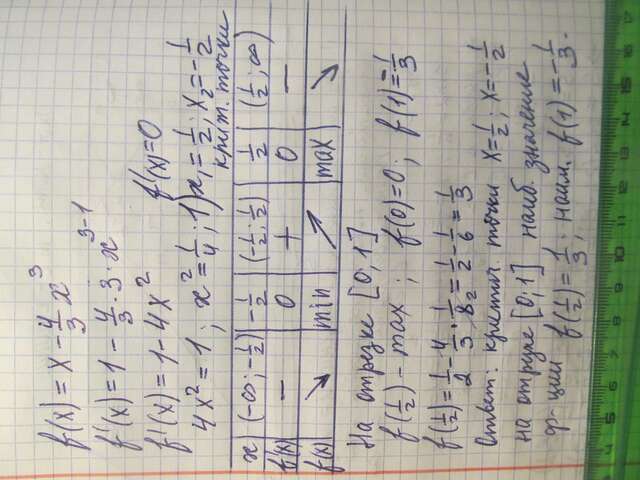 f(x) = x - 4/3 x³
f'(x) = 1 - 4/3 · 3 · x³⁻¹
f'(x) = 1 - 4x² f'(x)=0
4x² = 1; x² = 1/4; 1) x₁ = 1/2; x₂ = -1/2
крит. точки
x | (-∞; -1/2) | -1/2 | (-1/2; 1/2) | 1/2 | (1/2; ∞)
f'(x) | - | 0 | + | 0 | -
f(x) | ↘ | min | ↗ | max | ↘
На отрезке [0; 1]
f(1/2) - max; f(0)=0; f(1) = -1/3
f(1/2) = 1/2 - 4/3 · 1/8 = 1/2 - 1/6 = 1/3
Ответ: критич. точки x = 1/2; x = -1/2
на отрезке [0; 1] наиб. значение
ф-ции f(1/2) = 1/3; наим. f(1) = -1/3.